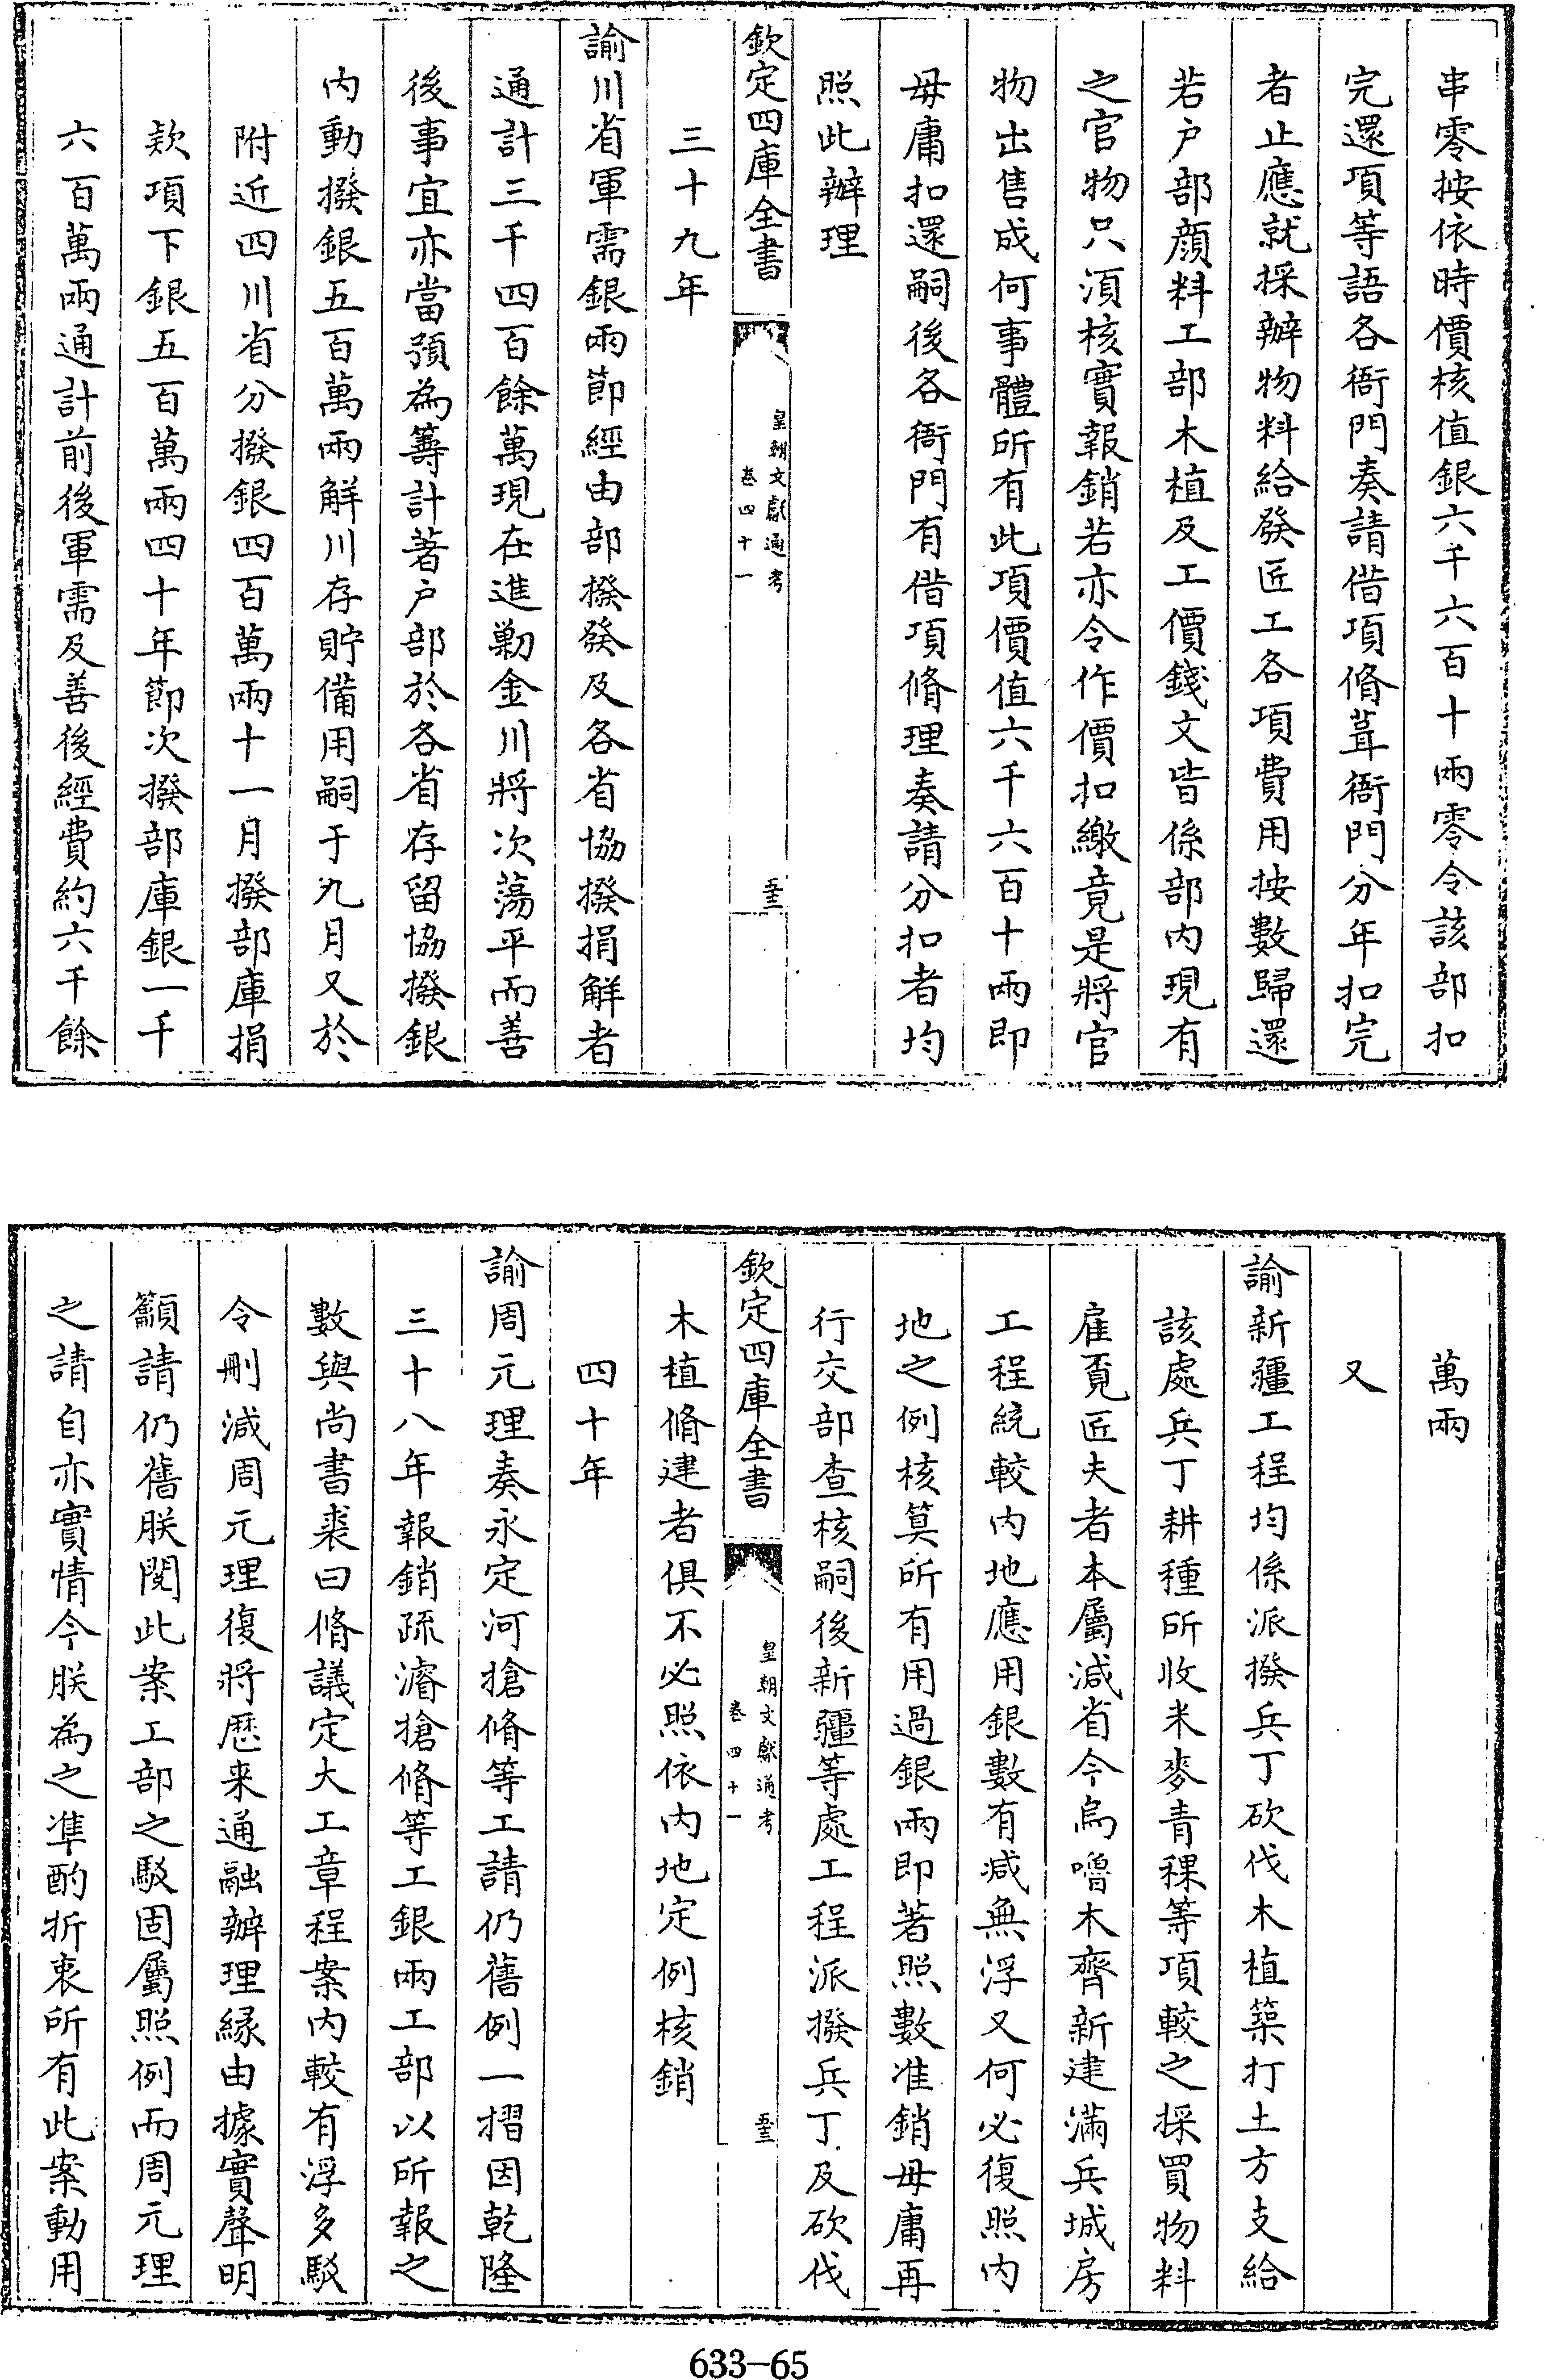 串零按依時價核值銀六千六百十兩零令該部扣
完還項等語各衙門奏請借項脩葺衙門分年扣完
者止應就採辦物料給發匠工各項費用按數歸還
若户部顔料工部木植及工價錢文皆係部内現有
之官物只須核實報銷若亦令作價扣繳竟是將官
物出售成何事體所有此項價值六千六百十兩即
毋庸扣還嗣後各衙門有借項脩理奏請分扣者均
照此辦理
欽定四庫全書
皇朝文獻通考
卷四十一
三十九年
諭川省軍需銀兩節經由部撥發及各省協撥捐解者
通計三千四百餘萬現在進勦金川將次蕩平而善
後事宜亦當預為籌計著户部於各省存留協撥銀
内動撥銀五百萬兩解川存貯備用嗣于九月又於
附近四川省分撥銀四百萬兩十一月撥部庫捐
欵項下銀五百萬兩四十年節次撥部庫銀一千
六百萬兩通計前後軍需及善後經費約六千餘
萬兩
又
諭新疆工程均係派撥兵丁砍伐木植築打土方支給
該處兵丁耕種所收米麥青稞等項較之採買物料
雇覓匠夫者本屬減省今烏嚕木齊新建滿兵城房
工程統較内地應用銀數有減無浮又何必復照内
地之例核算所有用過銀兩即著照數准銷毋庸再
行交部查核嗣後新疆等處工程派撥兵丁及砍伐
欽定四庫全書
皇朝文獻通考
卷四十一
木植脩建者俱不必照依内地定例核銷
四十年
諭周元理奏永定河搶脩等工請仍舊例一摺因乾隆
三十八年報銷疏濬搶脩等工銀兩工部以所報之
數與尚書裘曰脩議定大工章程案内較有浮多駁
令刪減周元理復將歷来通融辦理緣由據實聲明
籲請仍舊朕閱此案工部之駁固屬照例而周元理
之請自亦實情今朕為之準酌折衷所有此案動用
633-65